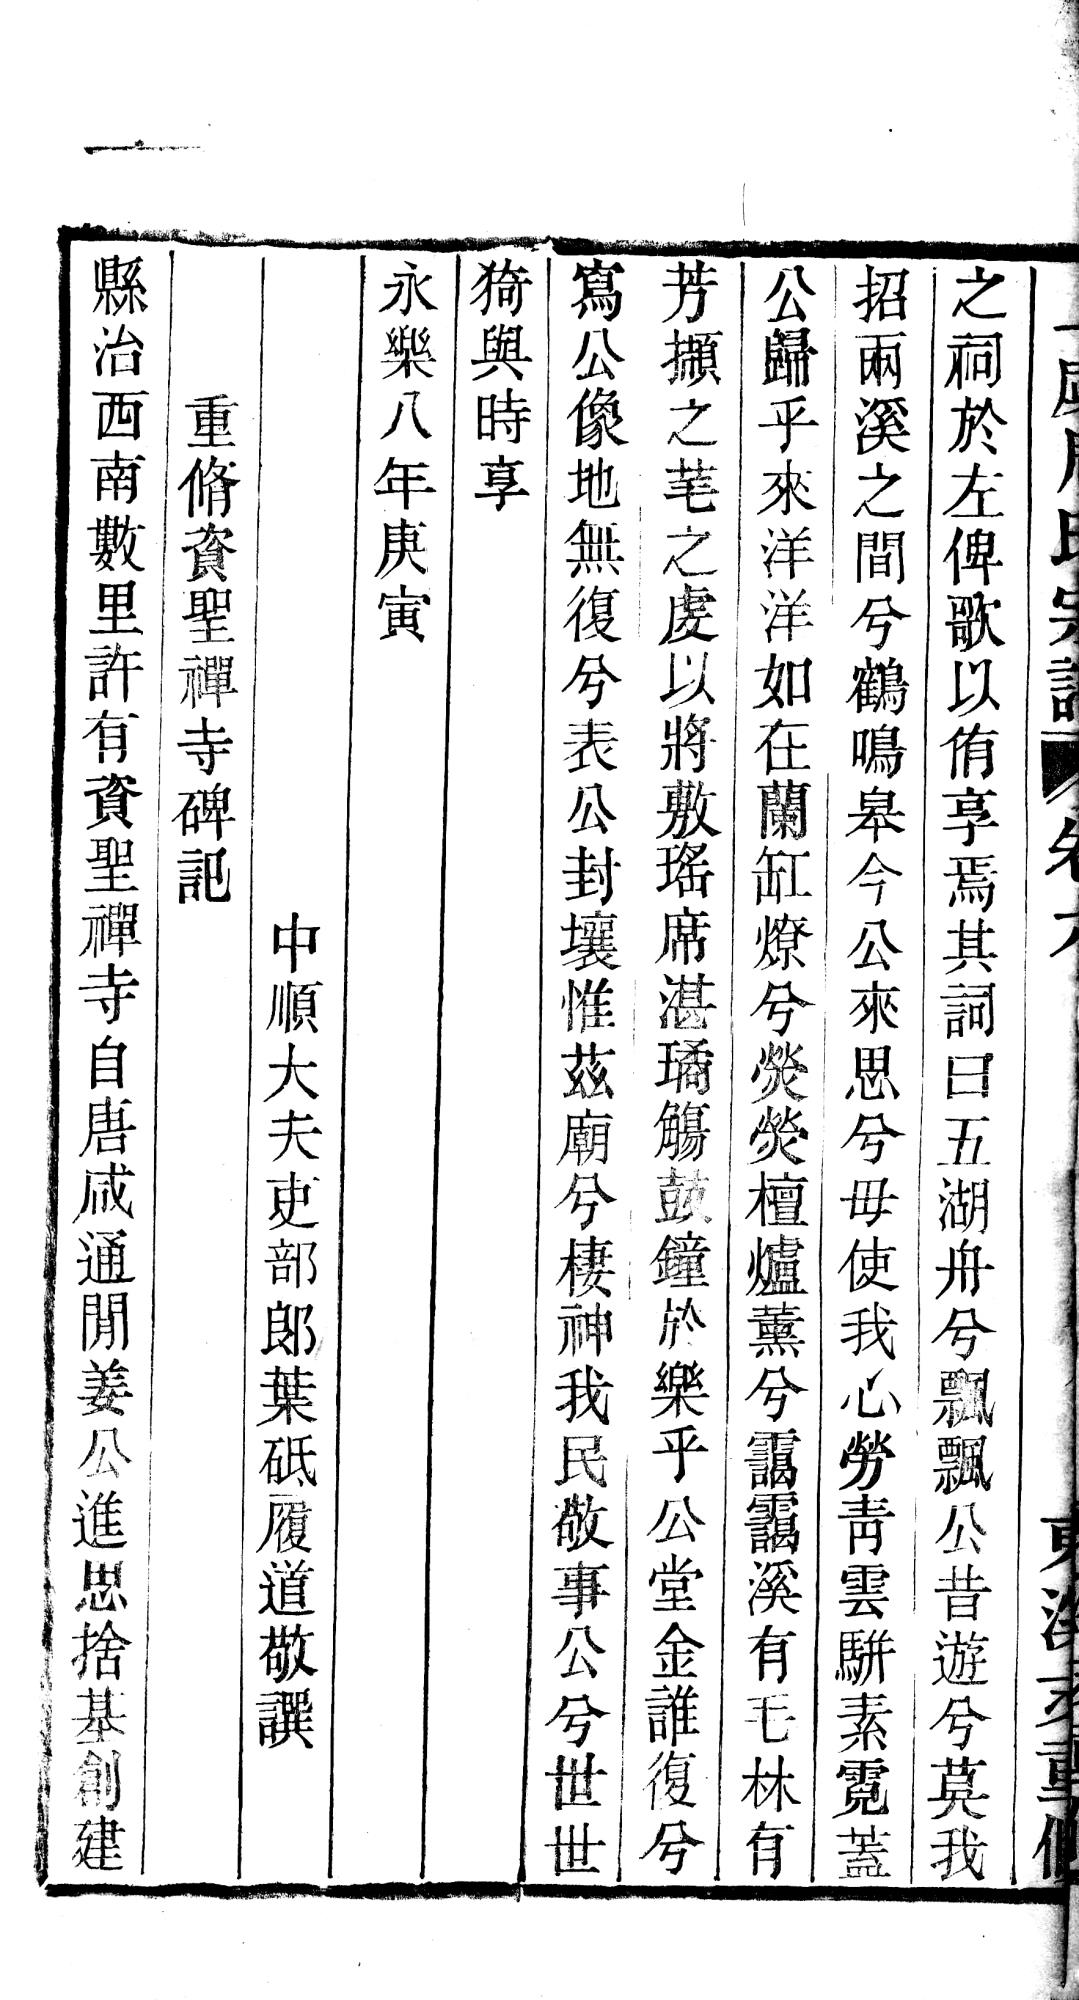 之祠於左俾歌以侑享焉其詞曰五湖舟兮飄飄公昔遊兮莫我
招兩溪之間兮鶴鳴皋今公來思兮毋使我心勞青雲駢素霓蓋
公歸乎來洋洋如在蘭缸燎兮熒熒檀爐薰兮靄靄溪有毛林有
芳擷之芼之虔以將敷瑤席湛璚觴鼓鐘於樂乎公堂金誰復兮
寫公像地無復兮表公封壤惟茲廟兮棲神我民敬事公兮世世
猗與時享
永樂八年庚寅
中順大夫吏部郎葉砥履道敬譔
重脩資聖禪寺碑記
縣治西南數里許有資聖禪寺自唐咸通閒姜公進思捨基創建